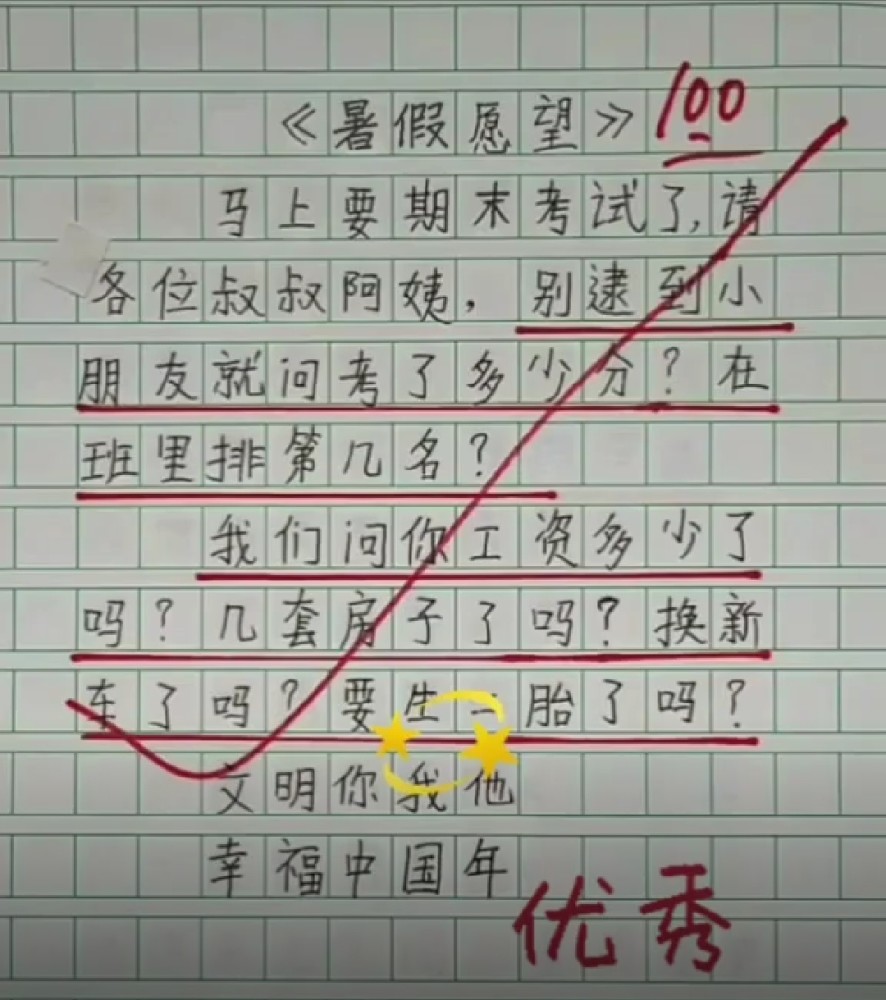 《暑假愿望》 100
马上要期末考试了,请
各位叔叔阿姨，别逮到小
朋友就问考了多少分？在
班里排第几名？
我们问你工资多少了
吗？几套房子了吗？换新
车了吗？要生二胎了吗？
文明你我他
幸福中国年
优秀